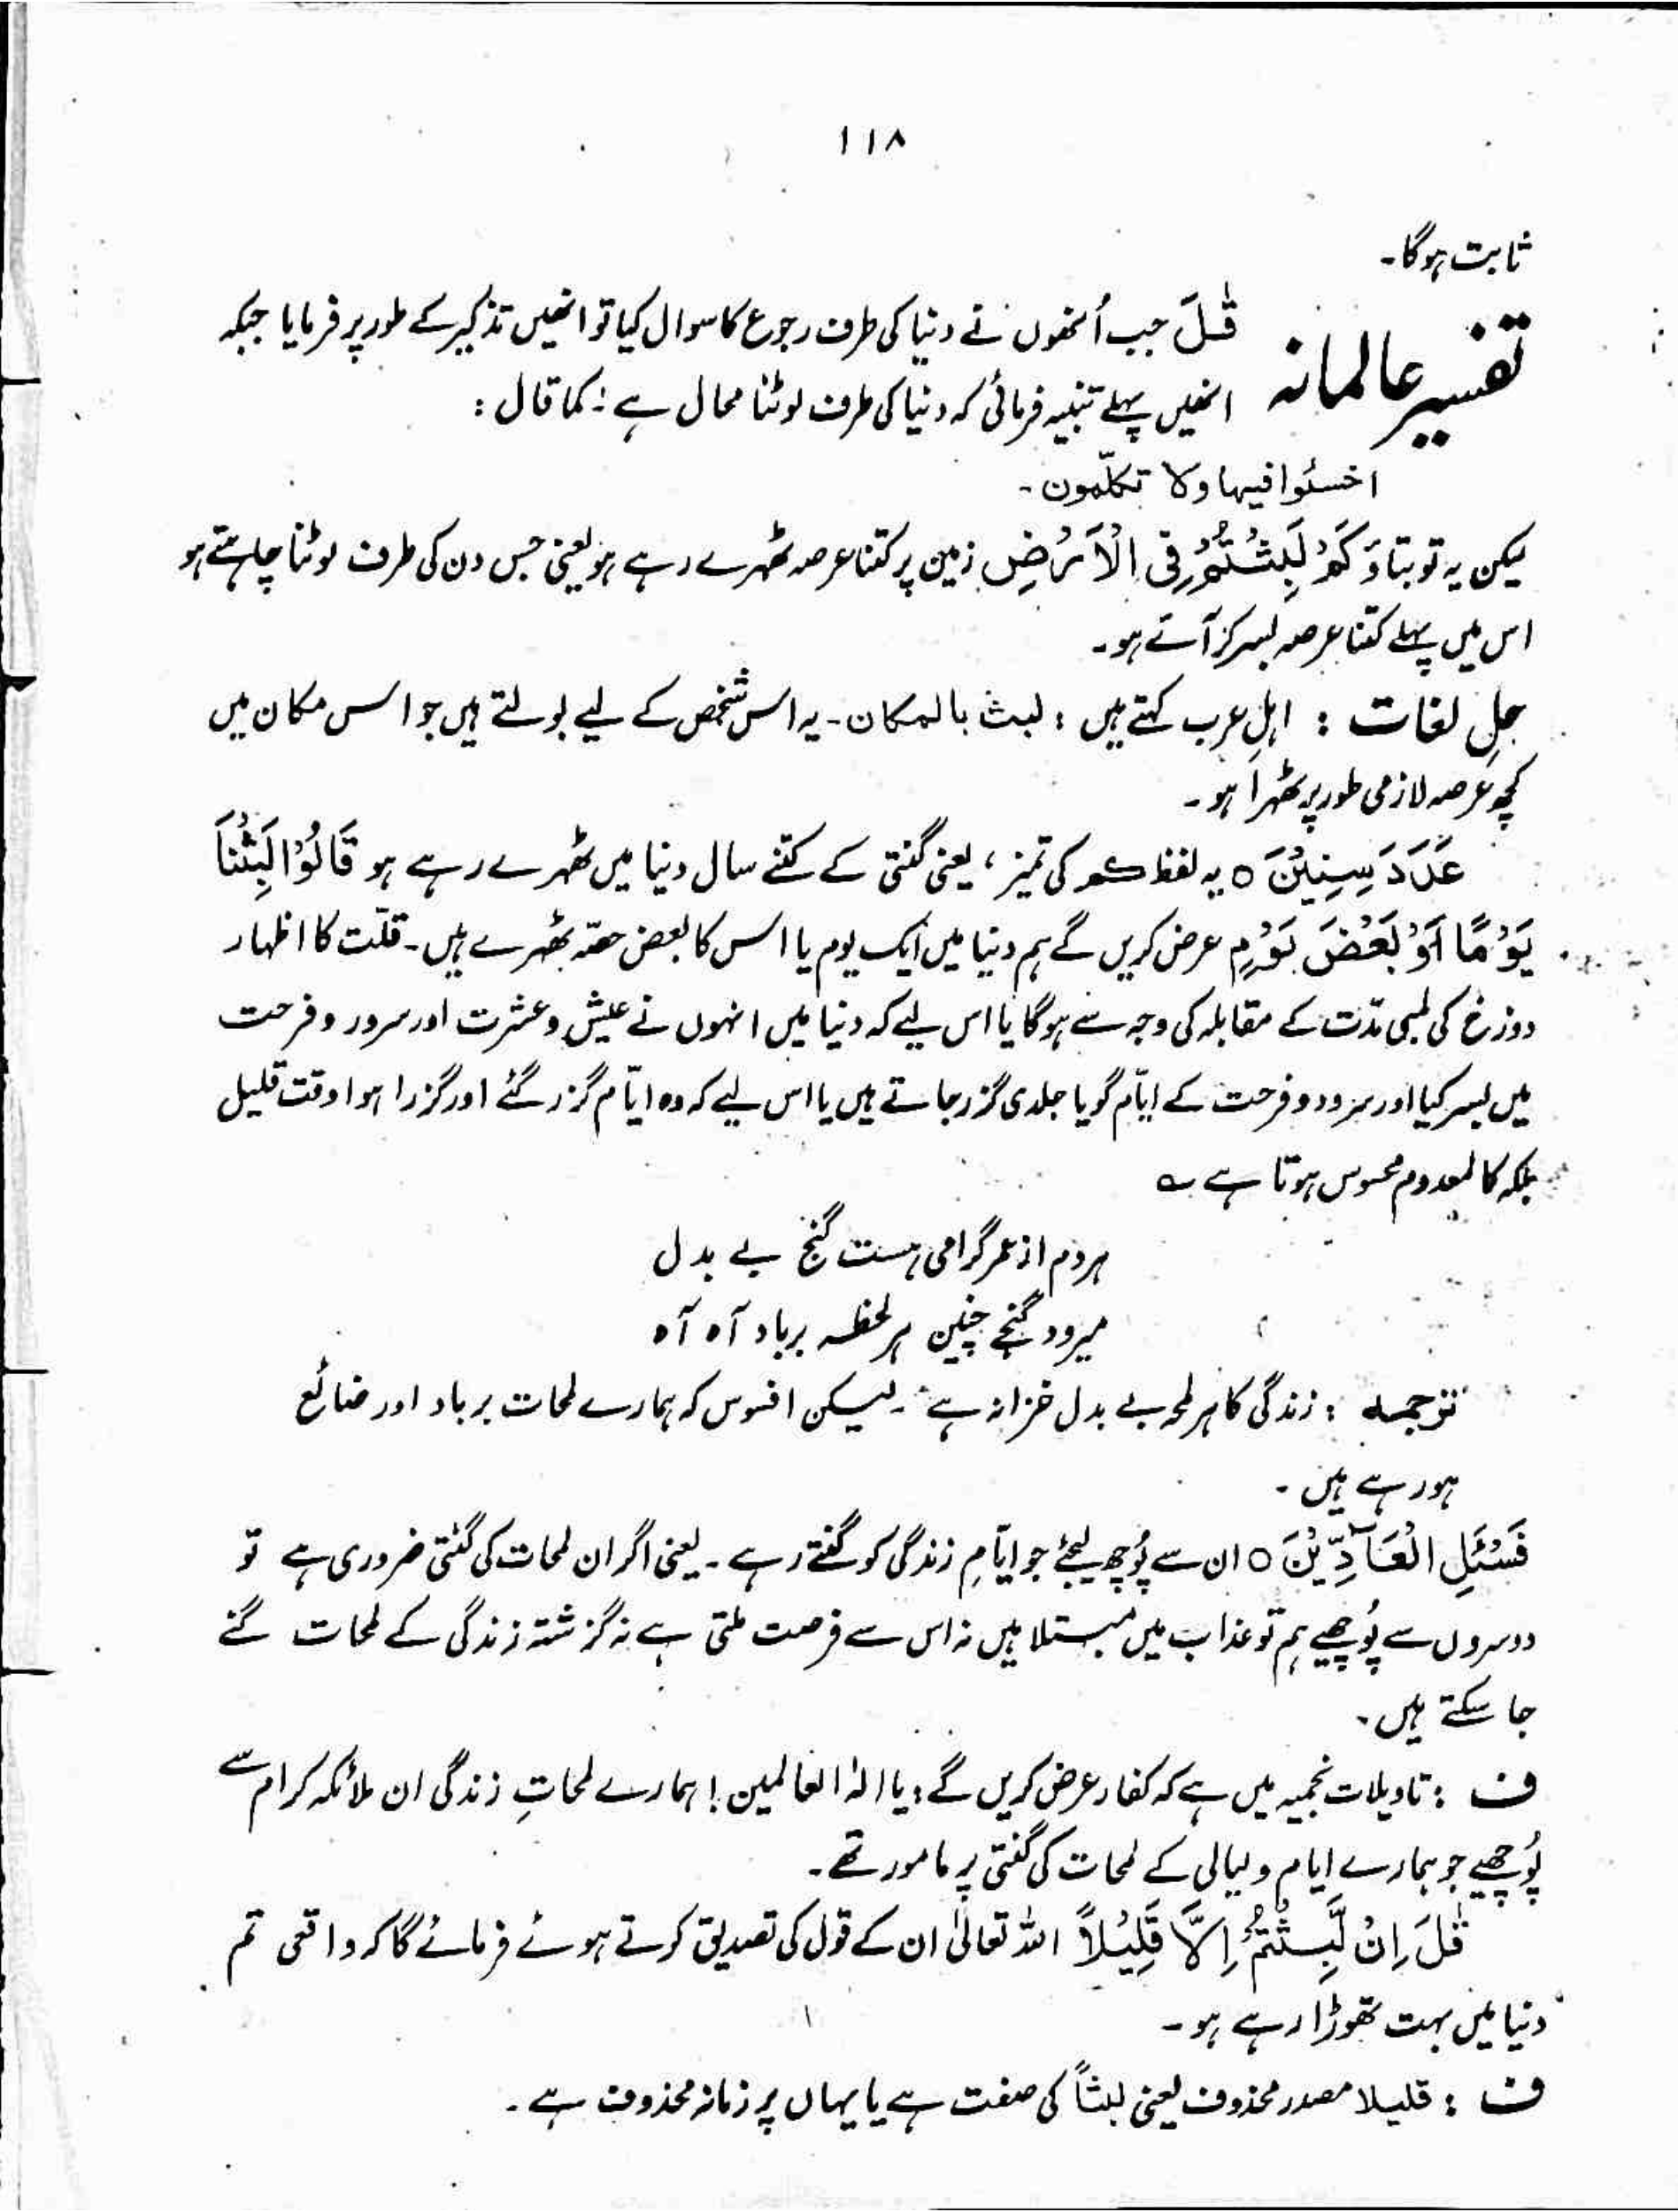 ۱۱۸
ثابت ہوگا۔
تفسیر عالمانہ
قٰلَ جب اُنھوں نے دنیا کی طرف رجوع کا سوال کیا تو انھیں تذکیر کے طور پر فرمایا جبکہ
انھیں پہلے تنبیہ فرمائی کہ دنیا کی طرف لوٹنا محال ہے : کما قال :
اخسئوا فیہا ولا تکلّمون۔
لیکن یہ تو بتاؤ كَمْ لَبِثْتُمْ فِی الْاَرْضِ زمین پر کتنا عرصہ ٹھہرے رہے ہو یعنی جس دن کی طرف لوٹنا چاہتے ہو
اس میں پہلے کتنا عرصہ بسر کر آتے ہو۔
حلِ لغات : اہلِ عرب کہتے ہیں : لبث بالمکان۔ یہ اس شخص کے لیے بولتے ہیں جو اس مکان میں
کچھ عرصہ لازمی طور پر ٹھہرا ہو۔
عَدَدَ سِنِیْنَ ○ یہ لفظ کم کی تمیز ، یعنی گنتی کے کتنے سال دنیا میں ٹھہرے رہے ہو قَالُوْا لَبِثْنَا
یَوْمًا اَوْ بَعْضَ یَوْمٍ عرض کریں گے ہم دنیا میں ایک یوم یا اس کا بعض حصّہ ٹھہرے ہیں۔ قلّت کا اظہار
دوزخ کی لمبی مدّت کے مقابلہ کی وجہ سے ہوگا یا اس لیے کہ دنیا میں انہوں نے عیش و عشرت اور سرور و فرحت
میں بسر کیا اور سرور و فرحت کے ایّام گویا جلدی گزر جاتے ہیں یا اس لیے کہ وہ ایّام گزر گئے اور گزرا ہوا وقت قلیل
بلکہ کالمعدوم محسوس ہوتا ہے ؎
ہر دم از عمر گرامی ہست گنج بے بدل
میرود گنجے چنین ہر لحظہ برباد آہ آہ
ترجمہ : زندگی کا ہر لمحہ بے بدل خزانہ ہے ۔ لیکن افسوس کہ ہمارے لمحات برباد اور ضائع
ہو رہے ہیں ۔
فَسْئَلِ الْعَآدِّیْنَ ○ ان سے پُوچھ لیجئے جو ایّامِ زندگی کو گنتے رہے ۔ یعنی اگر ان لمحات کی گنتی ضروری ہے تو
دوسروں سے پُوچھیے ہم تو عذاب میں مبتلا ہیں نہ اس سے فرصت ملتی ہے نہ گزشتہ زندگی کے لمحات گنے
جا سکتے ہیں۔
ف : تاویلات نجمیہ میں ہے کہ کفار عرض کریں گے : یا الٰہ العالمین ! ہمارے لمحاتِ زندگی ان ملائکہ کرام سے
پُوچھیے جو ہمارے ایام و لیالی کے لمحات کی گنتی پر مامور تھے۔
قٰلَ اِنْ لَّبِثْتُمْ اِلَّا قَلِیْلًا اللہ تعالیٰ ان کے قول کی تصدیق کرتے ہوئے فرمائے گا کہ واقعی تم
دنیا میں بہت تھوڑا رہے ہو ۔
ف : قلیلا مصدر محذوف یعنی لبثاً کی صفت ہے یا یہاں پر زمانہ محذوف ہے ۔